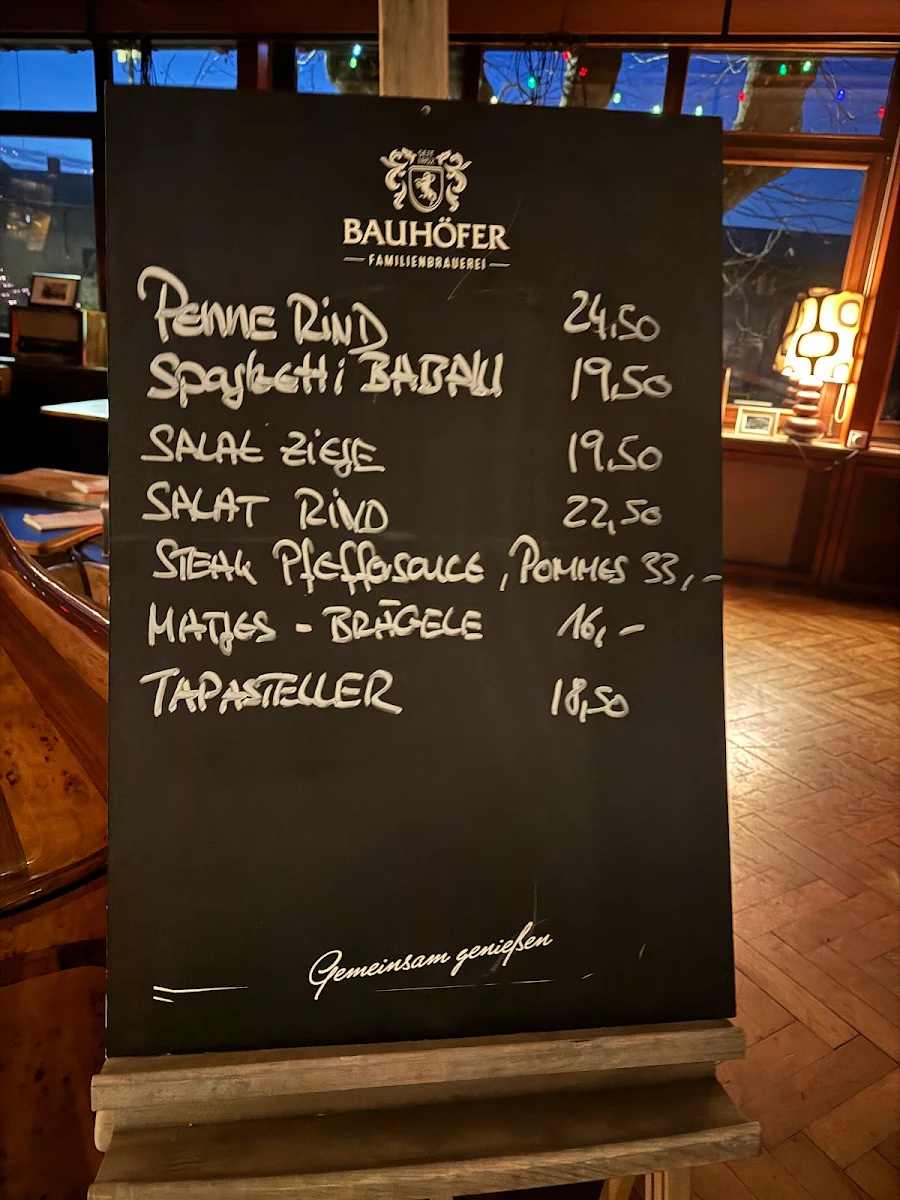 SEIT
1852
BAUHÖFER
FAMILIENBRAUEREI
PENNE RIND 24,50
Spaghetti BABALU 19,50
SALAT ZIEGE 19,50
SALAT RIND 22,50
STEAK Pfeffersauce, POMMES 33,-
MATJES - BRÄGELE 16,-
TAPASTELLER 18,50
Gemeinsam genießen